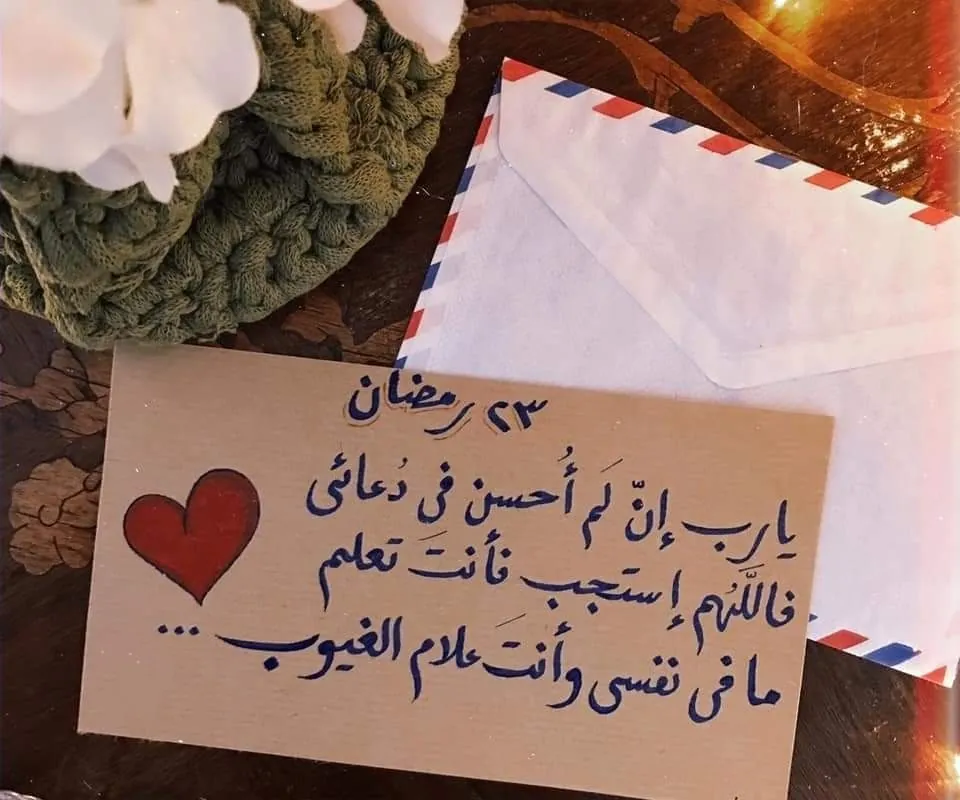 ٢٣ رمضان
يارب إنّ لَم أُحسن فى دُعائى
فاللَّهُم إستجب فأنتَ تعلم
ما فى نفسى وأنتَ علام الغيوب ...